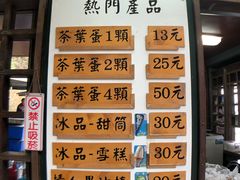 熱門產品
茶葉蛋1顆 13元
茶葉蛋2顆 25元
茶葉蛋4顆 50元
冰品-甜筒 30元
冰品-雪糕 30元
禁止吸菸